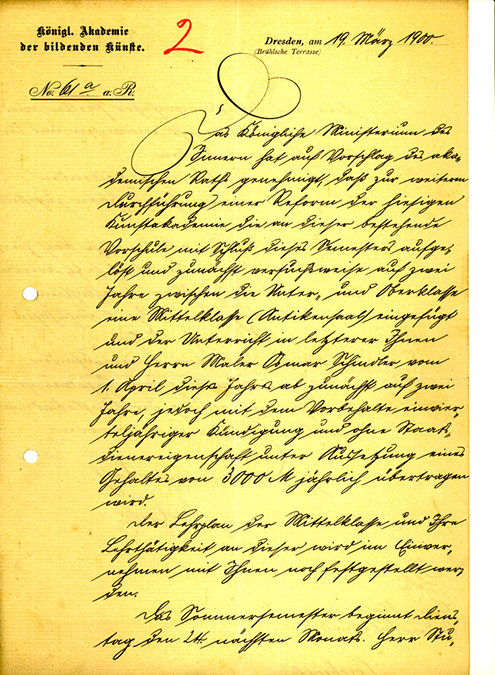 Königl. Akademie
der bildenden Künste.
2
Dresden, am 19. März 1900.
(Brühlsche Terrasse)
No. 61 a a. R.
Das Königliche Ministerium des
Innern hat auf Vorschlag des aka-
demischen Raths genehmigt, daß zur weiteren
Durchführung einer Reform der hiesigen
Kunstakademie die an dieser bestehende
Vorschule mit Schluß dieses Semesters aufge-
löst und zunächst versuchsweise auf zwei
Jahre zwischen die Unter- und Oberklasse
eine Mittelklasse (Antikensaal) eingefügt
und der Unterricht in letzterer Ihnen
und Herrn Maler Osmar Schindler vom
1. April dieses Jahres ab zunächst auf zwei
Jahre, jedoch mit dem Vorbehalte einvier
teljähriger Kündigung und ohne Staats-
dienereigenschaft unter Aussetzung eines
Gehaltes von 3000 M jährlich übertragen
wird.
Der Lehrplan der Mittelklasse und Ihre
Lehrthätigkeit an dieser wird im Einver-
nehmen mit Ihnen noch festgestellt wer-
den.
Das Sommersemester beginnt Diens-
tag den 24. nächsten Monats. Herr Stu-